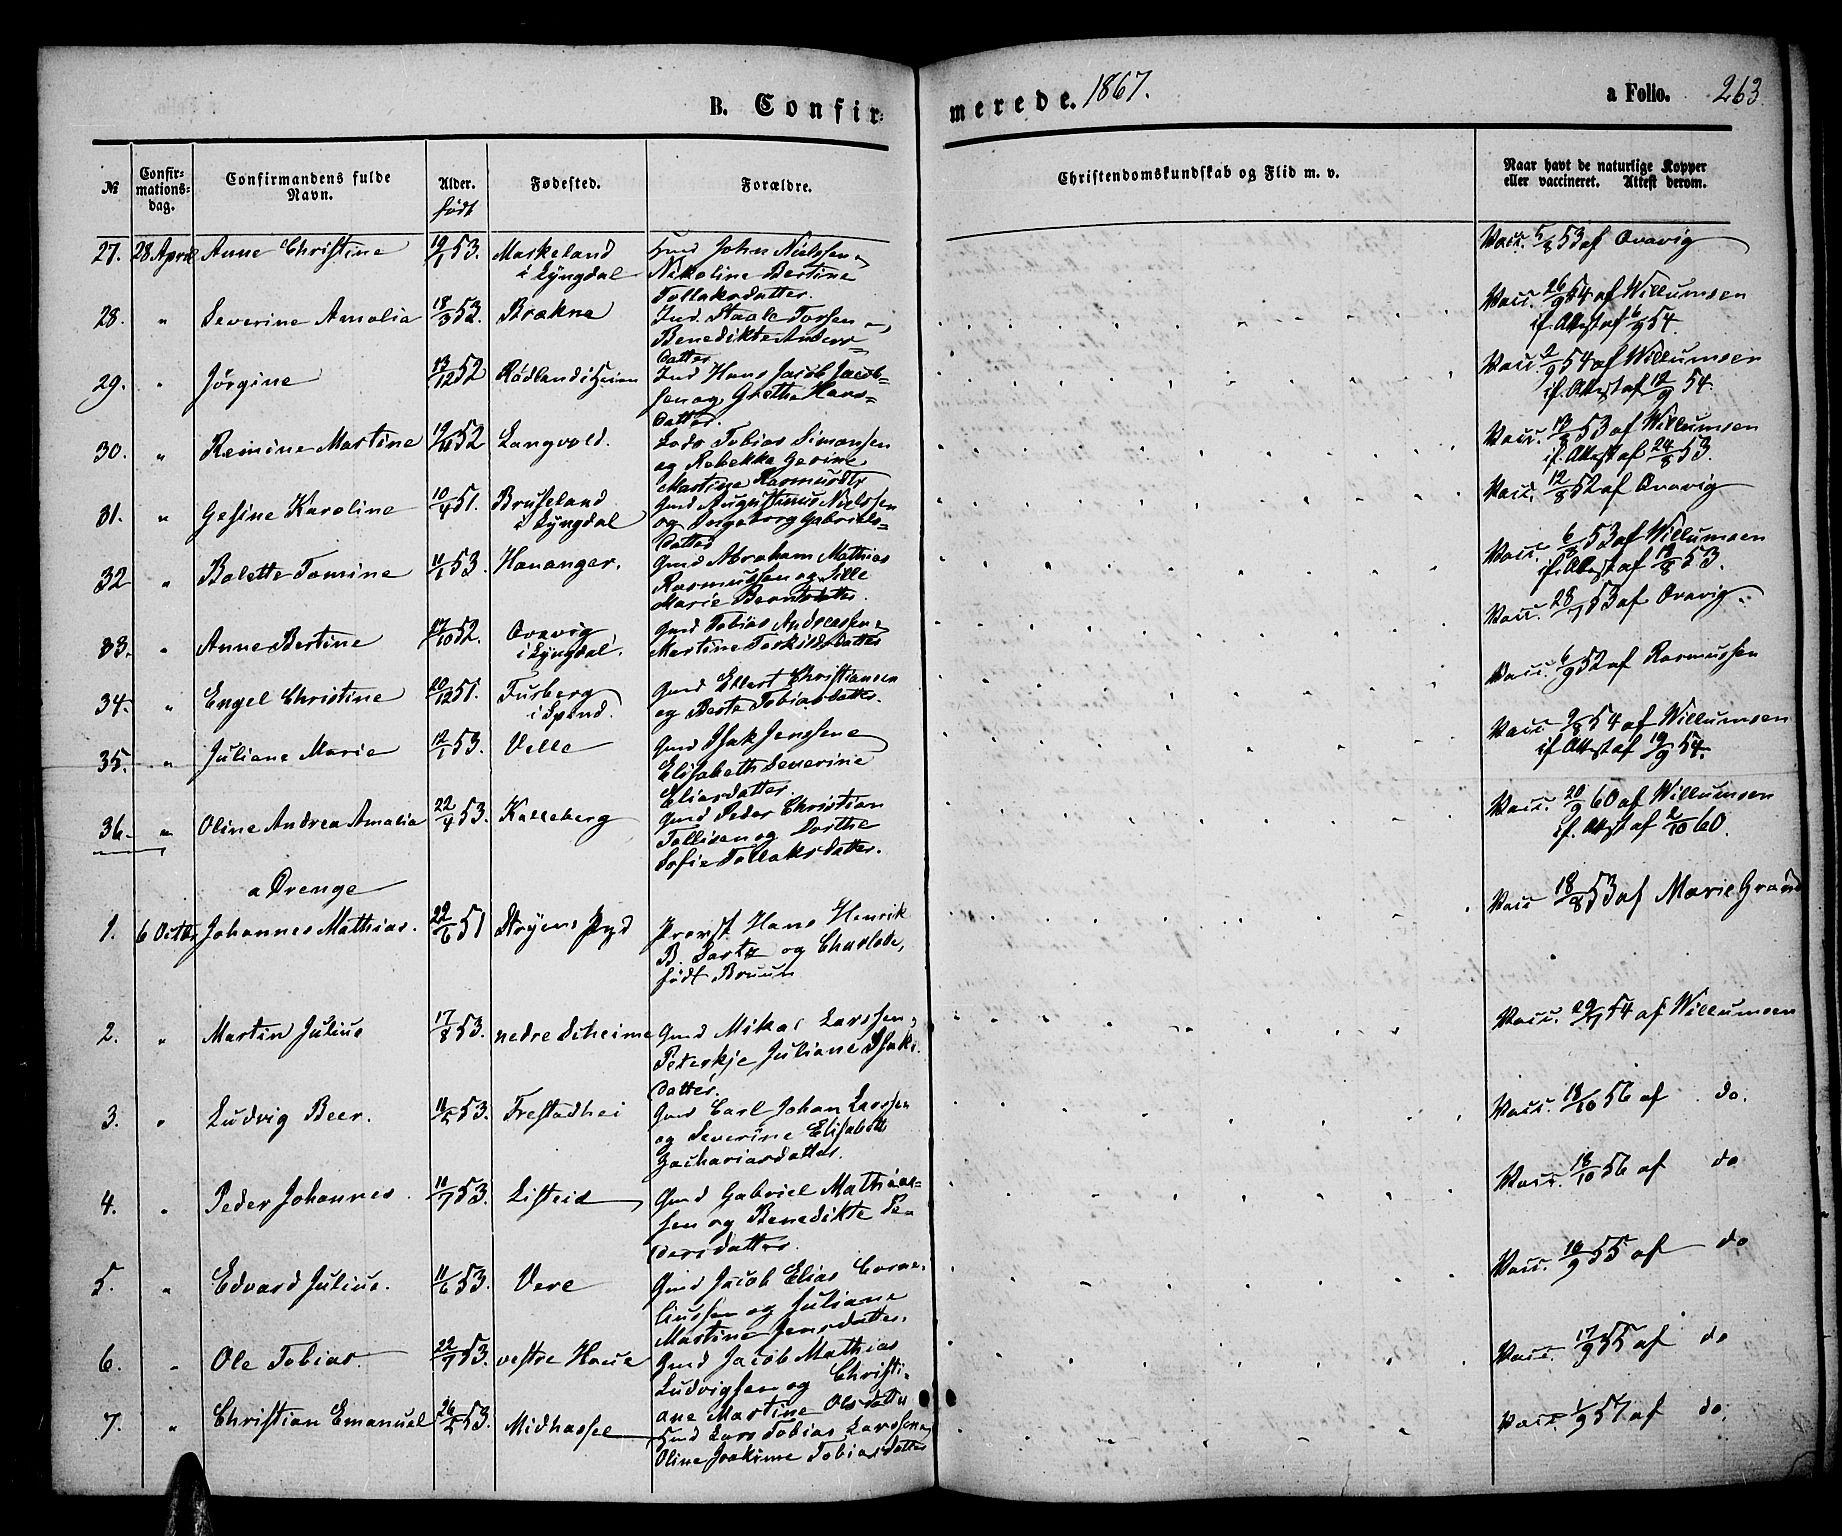 B. Confirmerede. 1867.
a Folio. 263
№
Confirmationsdag.
Confirmandens fulde Navn.
Alder. født
Fødested.
Forældre.
Christendomskundskab og Flid m. v.
Naar havt de naturlige Kopper eller vaccineret. Attest derom.
27. 28 April Anne Christine 19/1 53. Maskeland i Lyngdal
Nikoline Bertine Tollaksdatter. Vacc. 5/8 53 af Ovavig
28. " Severine Amalia 18/3 53. Brækne
Vacc. 26/9 54 af Willumsen
if. Attest af 54.
29. " Jørgine 13/12 52 Rødland i Heien
Ind Hans Jacob Jacobsen og Grethe Hansdatter. Vacc. 2/9 54 af Willumsen
if. Attest af 12/9 54.
30. " Remine Martine 52 Langvold.
Tobias Simonsen
og Rebekka Gesine
Martine Rasmusdtr Vacc. 53 af Willumsen
if. Attest af 24/8 53.
31. " Gesine Karoline 10/4 51. Bruseland i Lyngdal
Gmd Augustinus Nielssen
og Ingeborg Gabrielsdatter Vacc. 12/8 52 af Ovavig
32 " Bolette Tomine 11/1 53. Hananger.
Gmd Abraham Mathias
Rasmussen og Sille
Marie Berntsdatter. Vacc. 53 af Willumsen
if. Attest af 18/8 53.
33. " Anne Bertine 17/10 52. Ovavig i Lyngdal.
Gmd Tobias Andreassen
Martine Torkildsdatter Vacc. 28/7 53 af Ovavig.
34. " Engel Christine 20/12 51. Tusberg i Spind.
Gmd Ellert Christiansen
og Berte Tobiasdatter. Vacc. 6/9 52 af Rasmussen
35. " Juliane Marie 12/1 53. Velle
Gmd Isak Jenssen
Elisabeth Severine
Eliasdatter. Vacc. 9/8 54 af Willumsen
if. Attest af 19/9 54.
36. " Oline Andrea Amalia 22/4 53. Kalleberg
Gmd Peder Christian
Tollisen og Dorthe
Sofie Tollaksdatter. Vacc. 20/9 60 af Willumsen
if. Attest af 2/10 60.
a Drenge
1. 6 Octbr Johannes Mathias. 22/6 51
Provst Hans Henrik
B. og Charlotte,
født Bruun Vacc 18/8 53 af Marie
2. " Martin Julius 17/8 53. nedre Skeime
Gmd Mikal Larssen,
Pederkje Juliane Isaksdatter. Vacc. 54 af Willumsen
3. " Ludvig Beer. 53. Frestadhei
Gmd Carl Johan Larssen
og Severine Elisabeth
Zachariasdatter. Vacc. 18/10 56 af do.
4. " Peder Johannes. 11/7 53. Listeid
Gmd Gabriel Mathiassen og Benedikte Pedersdatter. Vacc. 18/10 56 af do
5. " Edvard Julius. 11/6 53. Vere
Gmd Jacob Elias Corneliussen og Juliane
Martine Jensdatter. Vacc. 55 af do
6. " Ole Tobias. 22/7 53. vestre Haue
Gmd Jacob Mathias
Ludvigsen og Christiane Martine Olsdatter Vacc. 17/9 55 af do
7. " Christian Emanuel 53. Midhassel
Lars Tobias Larssen
Oline Joakime Tobiasdatter Vacc. 1/9 57 af do.